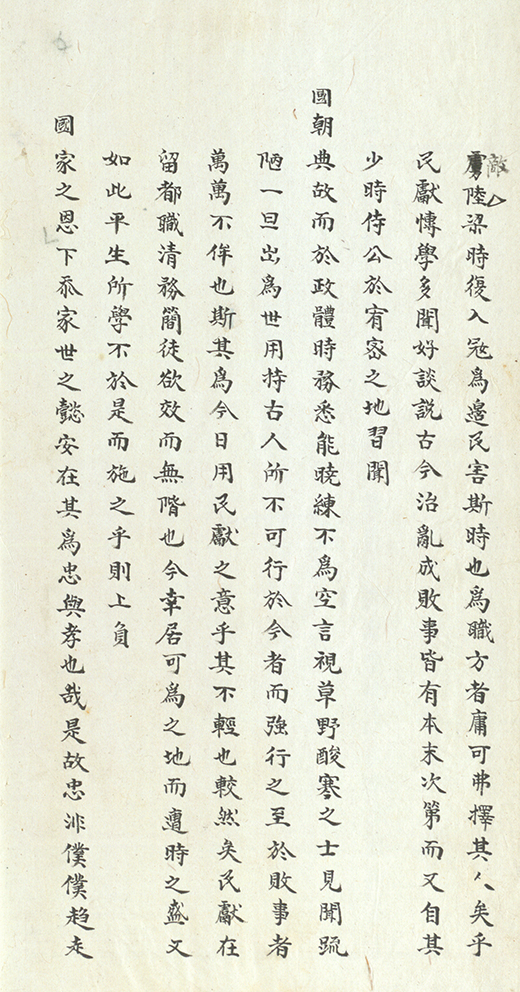 虜敵陸梁時復入冦為邊民害斯時也為職方者庸可弗擇其人矣乎
民獻愽學多聞好談説古今治亂成敗事皆有本末次第而又自其
少時侍公於宥宻之地習聞
國朝典故而於政體時務悉能曉練不為空言視草野酸寒之士見聞踈
陋一旦出為世用持古人所不可行於今者而強行之至於敗事者
萬萬不侔也斯其為今日用民獻之意乎其不輕也較然矣民獻在
留都職清務簡徒欲效而無階也今幸居可為之地而遭時之盛又
如此平生所學不於是而施之乎則上負
國家之恩下忝家世之懿安在其為忠與孝也哉是故忠非僕僕趋走